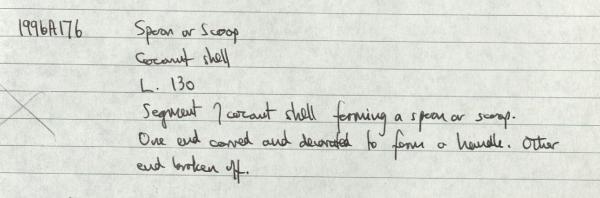 1996A176 Spoon or Scoop
Coconut shell
L. 130
Segment of cocount shell forming a spoon or scoop.
One end carved and decorated to form a handle. Other
end broken off.